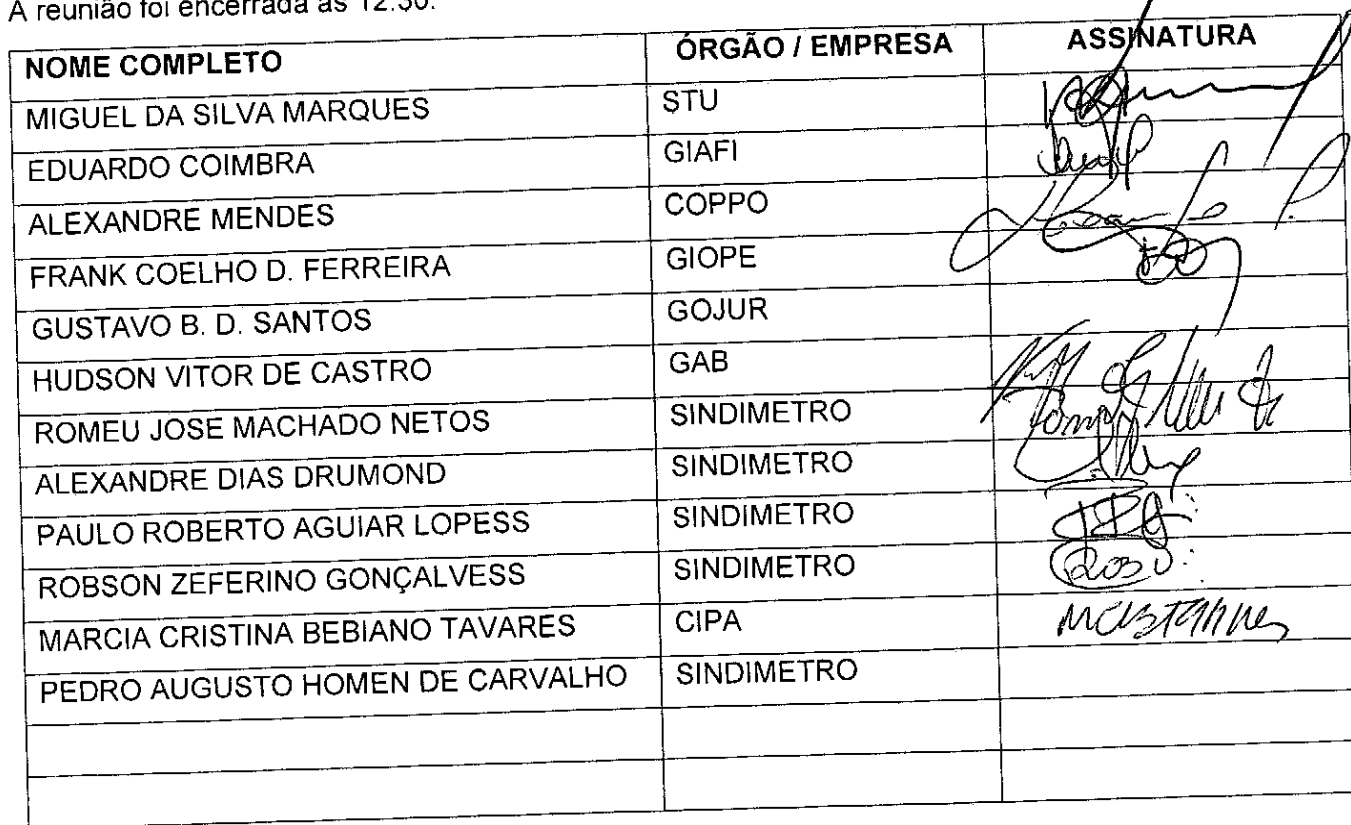 A reunião foi encerrada às 12:30.
NOME COMPLETO ÓRGÃO / EMPRESA ASSINATURA
MIGUEL DA SILVA MARQUES STU
EDUARDO COIMBRA GIAFI
ALEXANDRE MENDES COPPO
FRANK COELHO D. FERREIRA GIOPE
GUSTAVO B. D. SANTOS GOJUR
HUDSON VITOR DE CASTRO GAB
ROMEU JOSE MACHADO NETOS SINDIMETRO
ALEXANDRE DIAS DRUMOND SINDIMETRO
PAULO ROBERTO AGUIAR LOPESS SINDIMETRO
ROBSON ZEFERINO GONÇALVESS SINDIMETRO
MARCIA CRISTINA BEBIANO TAVARES CIPA
PEDRO AUGUSTO HOMEN DE CARVALHO SINDIMETRO